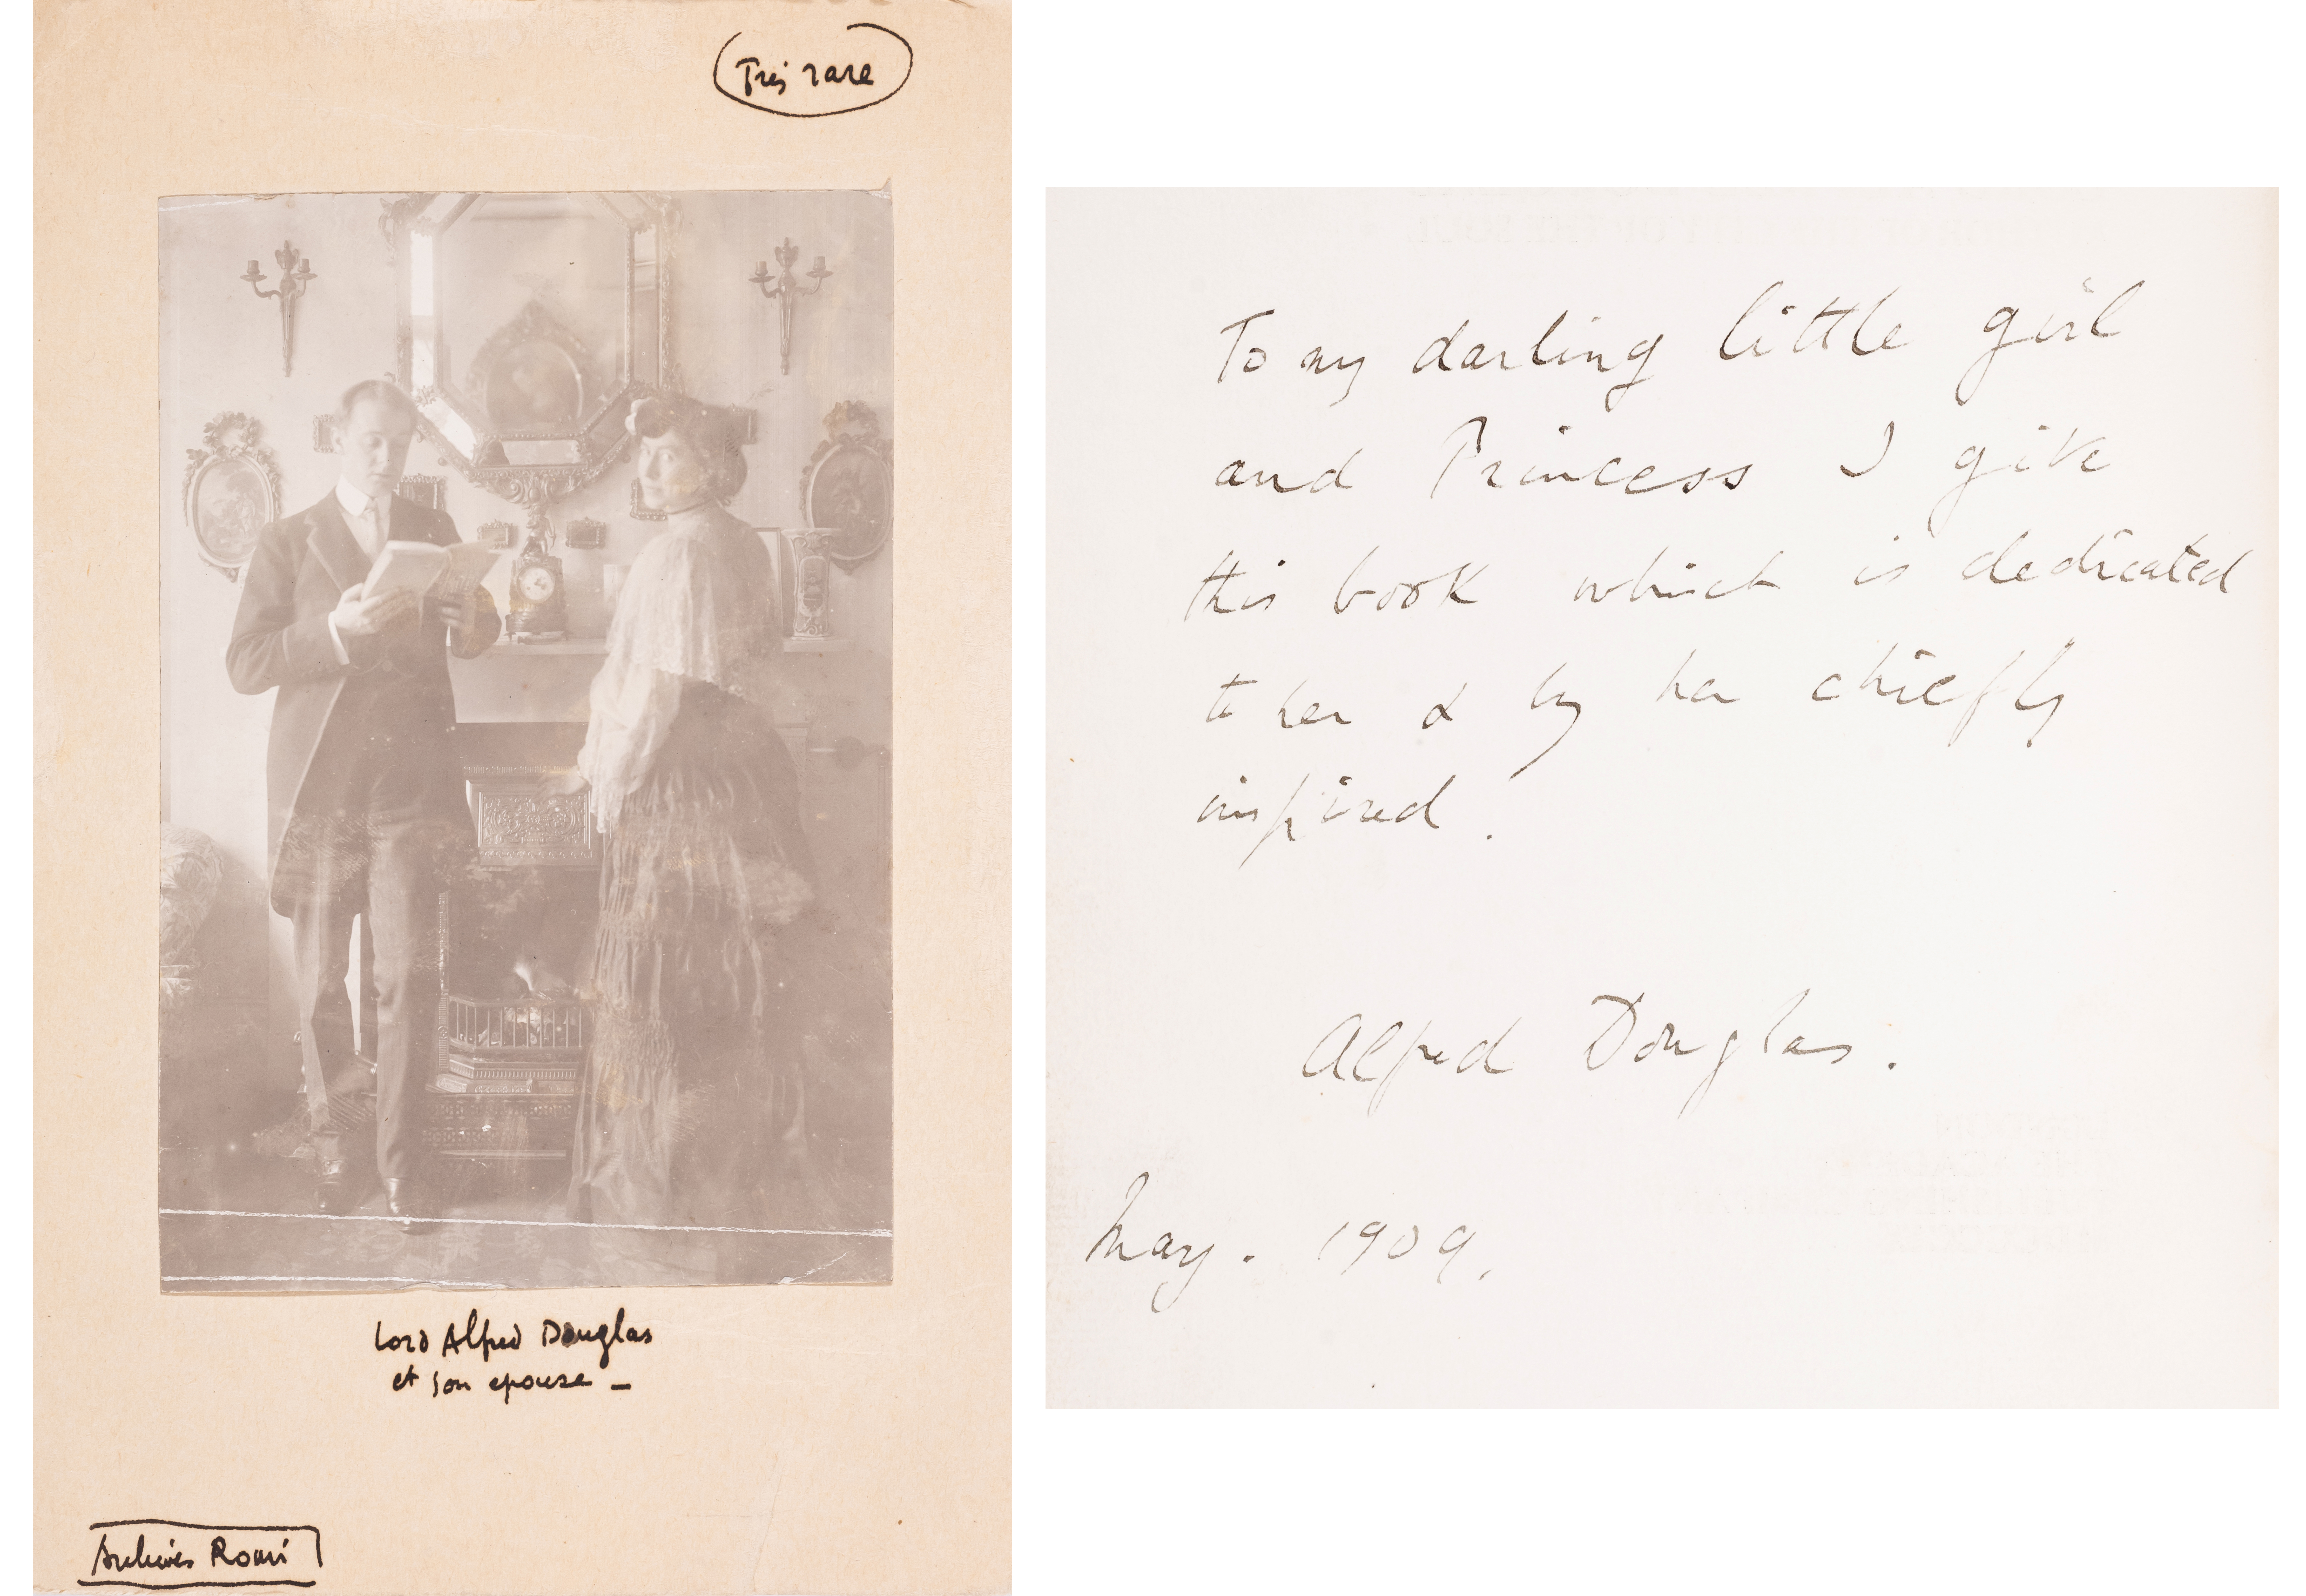 Très rare
Lord Alfred Douglas
et son epouse –
Archives Romi
To my darling little girl
and Princess I give
this book which is dedicated
to her & by her chiefly
inspired.
Alfred Douglas.
May. 1909.